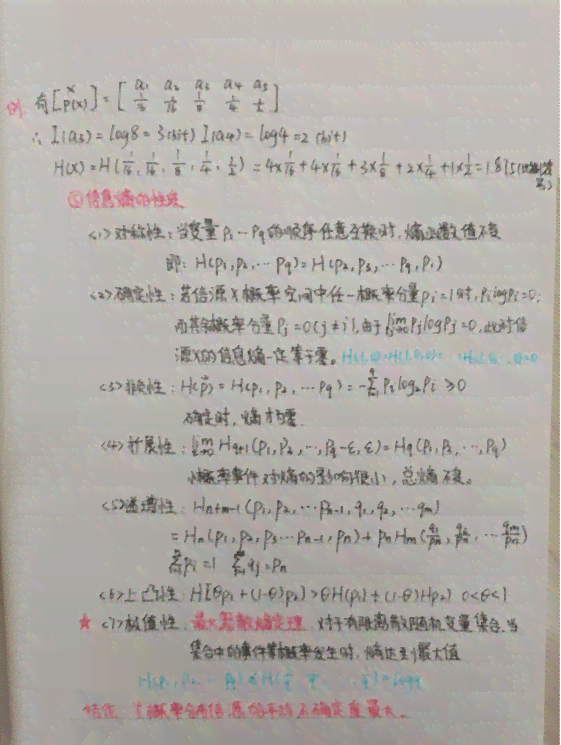 例. 有[X P(X)] = [a₁ a₂ a₃ a₄ a₅ 1/16 1/16 1/8 1/4 1/2]
∴ I(a₃) = log8 = 3(bit) I(a₄) = log4 = 2(bit)
H(X) = H(1/16, 1/16, 1/8, 1/4, 1/2) = 4×1/16+4×1/16+3×1/8+2×1/4+1×1/2=1.875(比特/符号)
信息熵的性质
<1>对称性:当变量P₁…Pq的顺序任意互换时,熵函数值不变
即:H(P₁,P₂,…Pq)=H(P₂,P₃,…Pq,P₁)
<2>确定性:若信源X概率空间中任一概率分量Pi=1时,PilogPi=0;
而其余概率分量Pj=0(j≠i),由于lim PjlogPj=0,此时信
源X的信息熵一定等于零。
<3>非负性:H(p⃗)=H(P₁,P₂,…Pq)=-∑Pilog₂Pi≥0
确定时,熵为零.
<4>扩展性:lim Hq+1(P₁,P₂,…,Pq-ε,ε)=Hq(P₁,P₂,…,Pq)
小概率事件对熵的影响很小,总熵不变。
<5>递增性:Hn+m-1(P₁,P₂,…Pn-1,q₁,q₂,…qm)
=Hn(P₁,P₂,P₃…Pn-1,Pn)+PnHm(q₁/Pn,q₂/Pn,…qm/Pn)
∑Pi=1 ∑qj=Pn
<6>上凸性:H[θP₁+(1-θ)P₂]>θH(P₁)+(1-θ)H(P₂) 0<θ<1
★<7>极值性:最大离散熵定理 对于有限离散随机变量集合,当
集合中的事件等概率发生时,熵达到最大值
结论 等概率分布信源的平均不确定度最大。